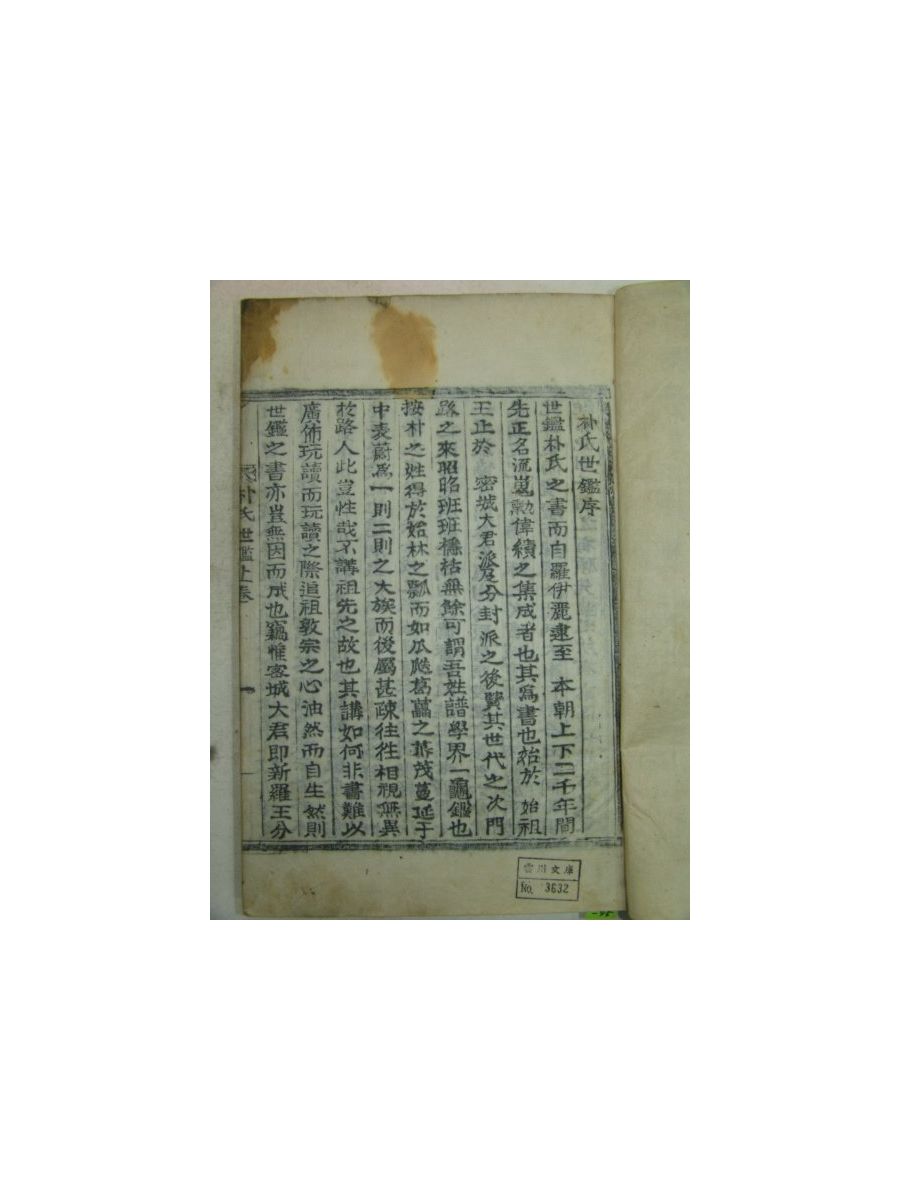 朴氏世鑑序
世鑑朴氏之書而自羅伊麗逮至 本朝上下二千年間
先正名流嵬勳偉績之集成者也其爲書也始於 始祖
王止於 密城大君派及分封派之後賢其世代之次門
路之來昭昭班班橋枯無餘可謂吾姓譜學界一龜鑑也
按朴之姓得於始林之瓢而如瓜瓞葛藟之叢茂蔓延于
中表蔚爲一則二則之大族而後屬甚疎往往相視無異
於路人此豈性哉不講祖先之故也其講如何非書難以
廣佈玩讀而玩讀之際追祖敦宗之心油然而自生然則
世鑑之書亦豈無因而成也竊惟密城大君即新羅王分
朴氏世鑑上卷 一
雲川文庫
No. 3632